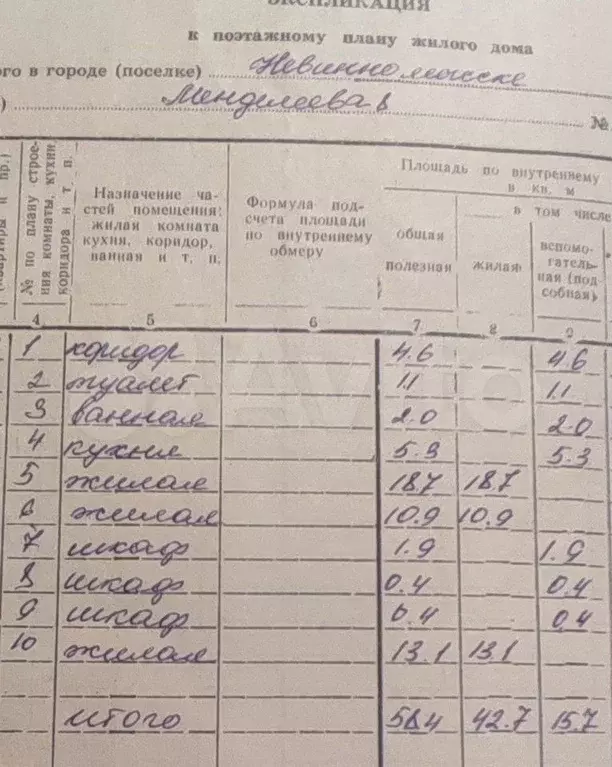 ЭКСПЛИКАЦИЯ
к поэтажному плану жилого дома
ого в городе (поселке) Невинномысске
) Менделеева №
(квартиры и пр.)
№ по плану строе-
ния комнаты, кухни
коридора и т. п.
Назначение ча-
стей помещения:
жилая комната
кухня, коридор,
ванная и т, п,
Формула под-
счета площади
по внутреннему
обмеру
Площадь по внутреннему
в кв, м
в том числе
общая
полезная
жилая
вспомо-
гатель-
ная (под
собная)
4 5 6 7 8 9
1 коридор 4.6 4.6
2 туалет 1.1 1.1
3 ванная 2.0 2.0
4 кухня 5.3 5.3
5 жилая 18.7 18.7
6 жилая 10.9 10.9
7 шкаф 1.9 1.9
8 шкаф 0.4 0.4
9 шкаф 0.4 0.4
10 жилая 13.1 13.1
итого 58.4 42.7 15.7